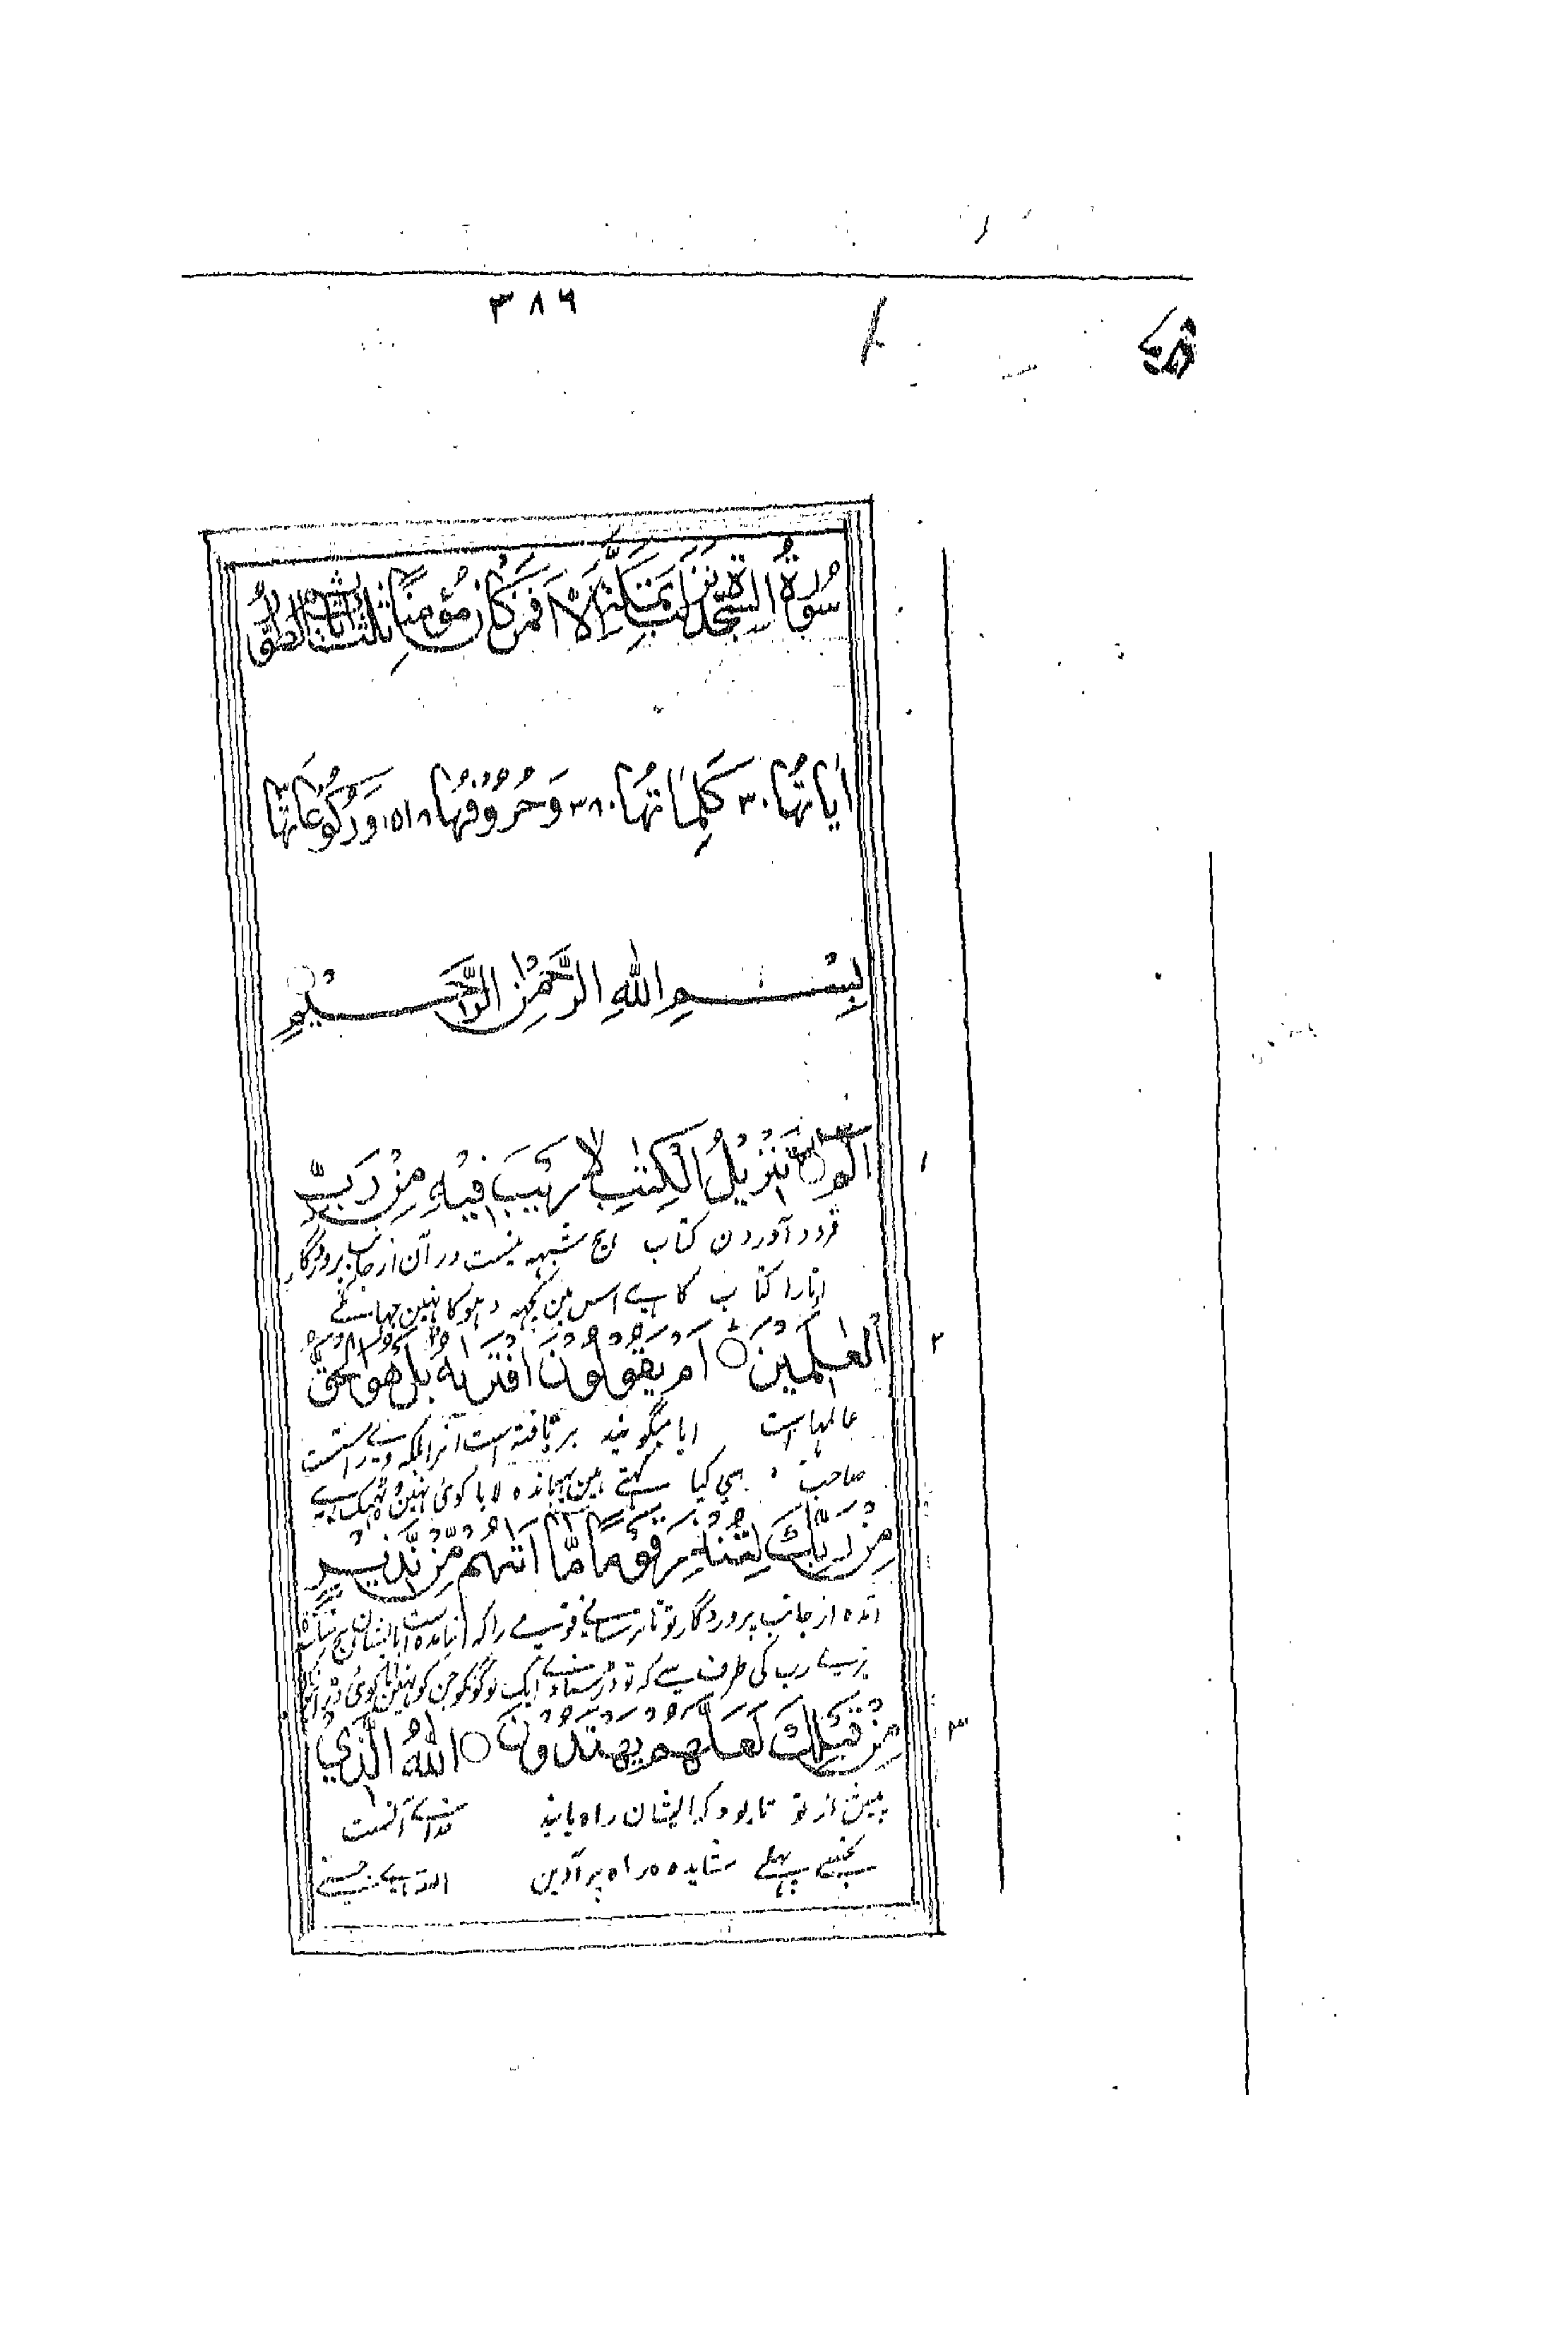 ٣٨٦
سُوْرَةُ السَّجْدَةِ نَزَلَتْ بِمَكَّةَ اِلَّا اَفَمَنْ كَانَ مُؤْمِنًا ثَلٰثُ اٰيَاتٍ
اٰيَاتُهَا ٣٠ كَلِمَاتُهَا ٣٨٠ وَحُرُوْفُهَا ١٥١٨ وَرُكُوْعَاتُهَا
بِسْمِ اللهِ الرَّحْمٰنِ الرَّحِيْمِ
الٓمّٓ ۝ تَنْزِيْلُ الْكِتٰبِ لَا رَيْبَ فِيْهِ مِنْ رَّبِّ ١
فرود آوردن كتاب هيچ شبهه نيست در آن از جانب پروردگار
اتارا كتاب كا ہے اس مين كچهه دہوكا نہين جہانكے
الْعٰلَمِيْنَ ۝ اَمْ يَقُوْلُوْنَ افْتَرٰىهُ بَلْ هُوَ الْحَقُّ ٢
عالمهاست ايا ميگويند بر بافته است آنرا بلكه وے راست است
صاحب سي كيا كہتے ہين يہہ باندہ لايا كوئي نہين وہ ٹهيك ہے
مِنْ رَّبِّكَ لِتُنْذِرَ قَوْمًا مَّا اَتٰهُمْ مِّنْ نَّذِيْرٍ
آمده از جانب پروردگار تو تا بترسانے قومے را كه نيامده است بايشان هيچ
تيرے رب كي طرف سے كه تو ڈر سنادے ايك لوگونكو جن كو نہين آيا كوئي
مِنْ قَبْلِكَ لَعَلَّهُمْ يَهْتَدُوْنَ ۝ اَللهُ الَّذِيْ ٣
پيش از تو تا بود كه ايشان راه يابند خداے آنست
تجهسے پہلے شايد وہ راہ پر آوين اللہ ہے جسنے